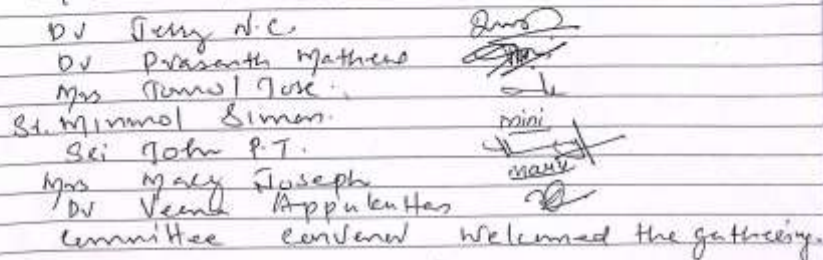 Dr Jerry N.C.
Dr Prasanth Mathews
Mrs Jomol Jose.
Sr. Minimol Simon. mini
Sri John P.T.
Mrs Macy Joseph
Dr Veena Appukuttan
Committee convenor welcomed the gathering.